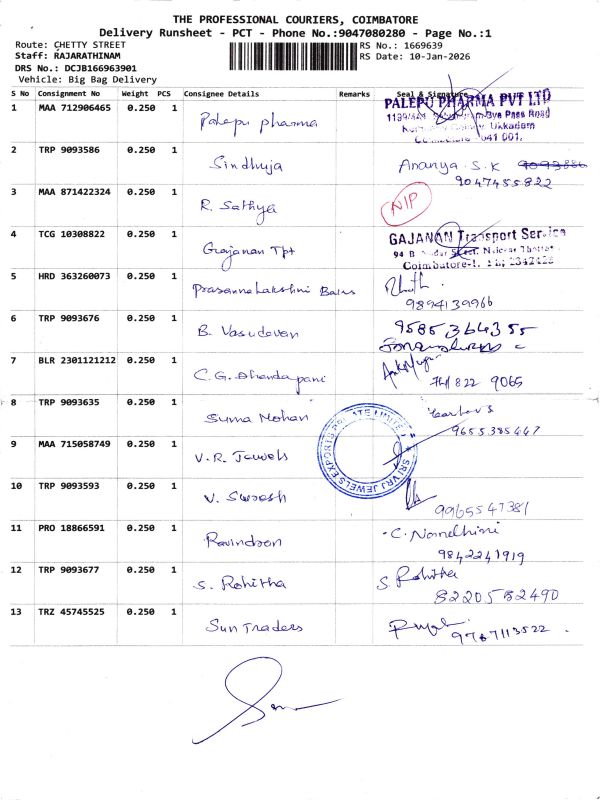 THE PROFESSIONAL COURIERS, COIMBATORE
Delivery Runsheet - PCT - Phone No.:9047080280 - Page No.:1
Route: CHETTY STREET RS No.: 1669639
Staff: RAJARATHINAM RS Date: 10-Jan-2026
DRS No.: DCJB166963901
Vehicle: Big Bag Delivery
S No Consignment No Weight PCS Consignee Details Remarks Seal & Signature
1 MAA 712906465 0.250 1 Palepu pharma PALEPU PHARMA PVT LTD
Bye Pass Road
Ukkadam
641 001.
2 TRP 9093586 0.250 1 Sindhuja Ananya. S. K
9047455822
3 MAA 871422324 0.250 1 R. Sathya NIP
4 TCG 10308822 0.250 1 Gajanan Tpt GAJANAN Transport Service
94 B
Coimbatore-1.
5 HRD 363260073 0.250 1 Prasanna Lakshmi
9894139966
6 TRP 9093676 0.250 1 B. Vasudevan 9585364355
7 BLR 2301121212 0.250 1 C.G. Dhandapani
9065
8 TRP 9093635 0.250 1 Suma Mohan
9655385447
9 MAA 715058749 0.250 1 V.R. Jewels SRI VRJ JEWELS EXPORTS PRIVATE LIMITED
10 TRP 9093593 0.250 1 V. Suresh
9965547381
11 PRO 18866591 0.250 1 C. Nandhini
9842241919
12 TRP 9093677 0.250 1 S. Rohitha S. Rohitha
8220582490
13 TRZ 45745525 0.250 1 Sun Traders
9767113522